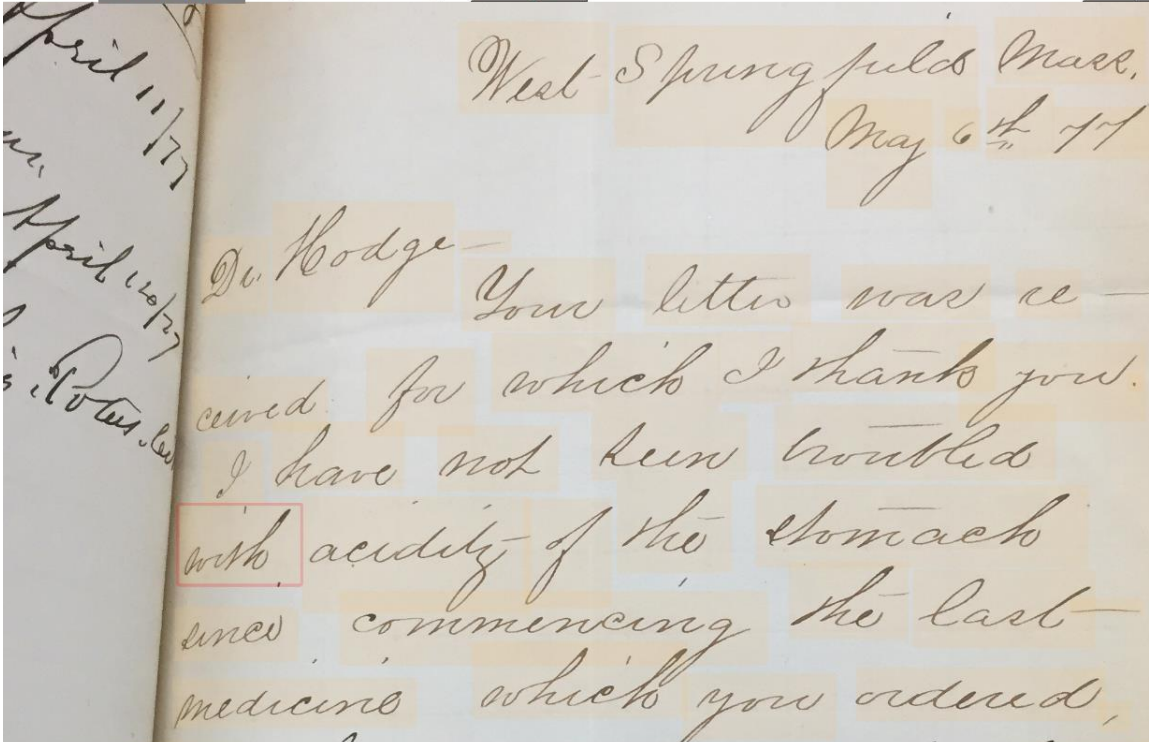 April 11/77
April 20/77
West Springfield Mass.
May 6th 77
Dr. Hodge—
Your letter was re-
ceived for which I thank you.
I have not been troubled
with acidity of the stomach
since commencing the last
medicine which you ordered,